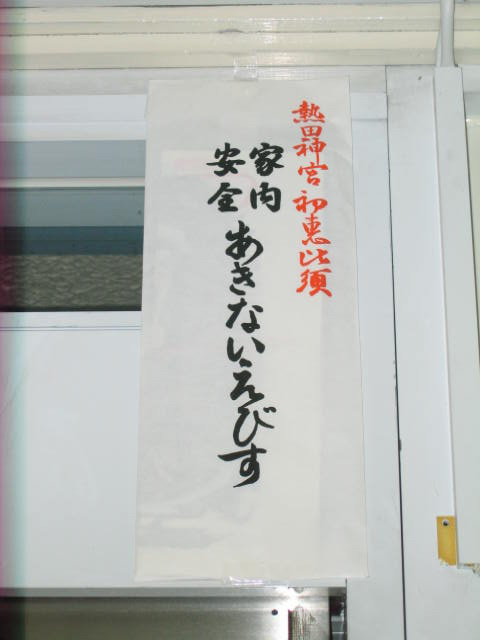 熱田神宮 初恵比須
家内
安全
あきないえびす